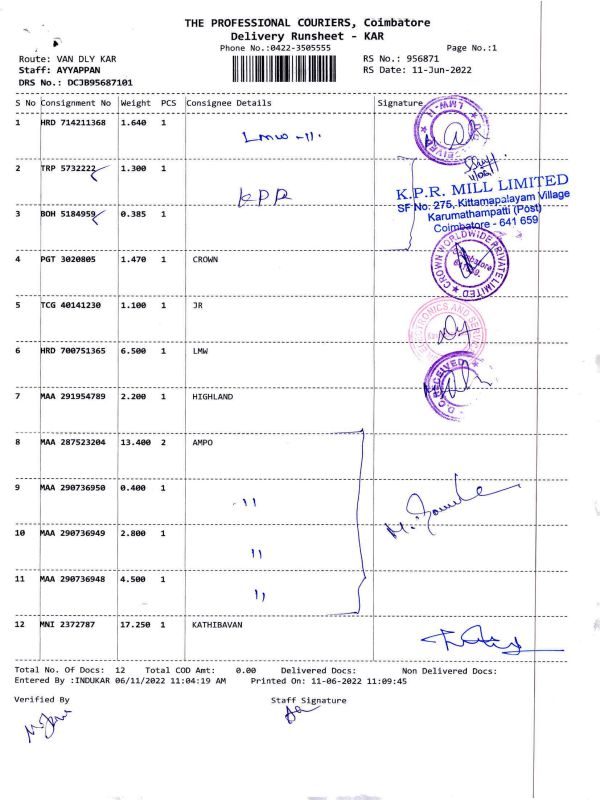 THE PROFESSIONAL COURIERS, Coimbatore
Delivery Runsheet - KAR
Phone No.:0422-3505555 Page No.:1
Route: VAN DLY KAR RS No.: 956871
Staff: AYYAPPAN RS Date: 11-Jun-2022
DRS No.: DCJB95687101
S No Consignment No Weight PCS Consignee Details Signature
1 HRD 714211368 1.640 1 LMW -11.
LMW-11
2 TRP 5732222 1.300 1
KPR
K.P.R. MILL LIMITED
SF No: 275, Kittamapalayam Village
Karumathampatti (Post)
Coimbatore - 641 659
3 BOH 5184959 0.385 1
4 PGT 3020805 1.470 1 CROWN
CROWN WORLDWIDE PRIVATE LIMITED
Coimbatore
5 TCG 40141230 1.100 1 JR
6 HRD 700751365 6.500 1 LMW
RECEIVED
7 MAA 291954789 2.200 1 HIGHLAND
8 MAA 287523204 13.400 2 AMPO
9 MAA 290736950 0.400 1 - 11
10 MAA 290736949 2.800 1 11
11 MAA 290736948 4.500 1 11
12 MNI 2372787 17.250 1 KATHIBAVAN
Total No. Of Docs: 12 Total COD Amt: 0.00 Delivered Docs: Non Delivered Docs:
Entered By :INDUKAR 06/11/2022 11:04:19 AM Printed On: 11-06-2022 11:09:45
Verified By Staff Signature